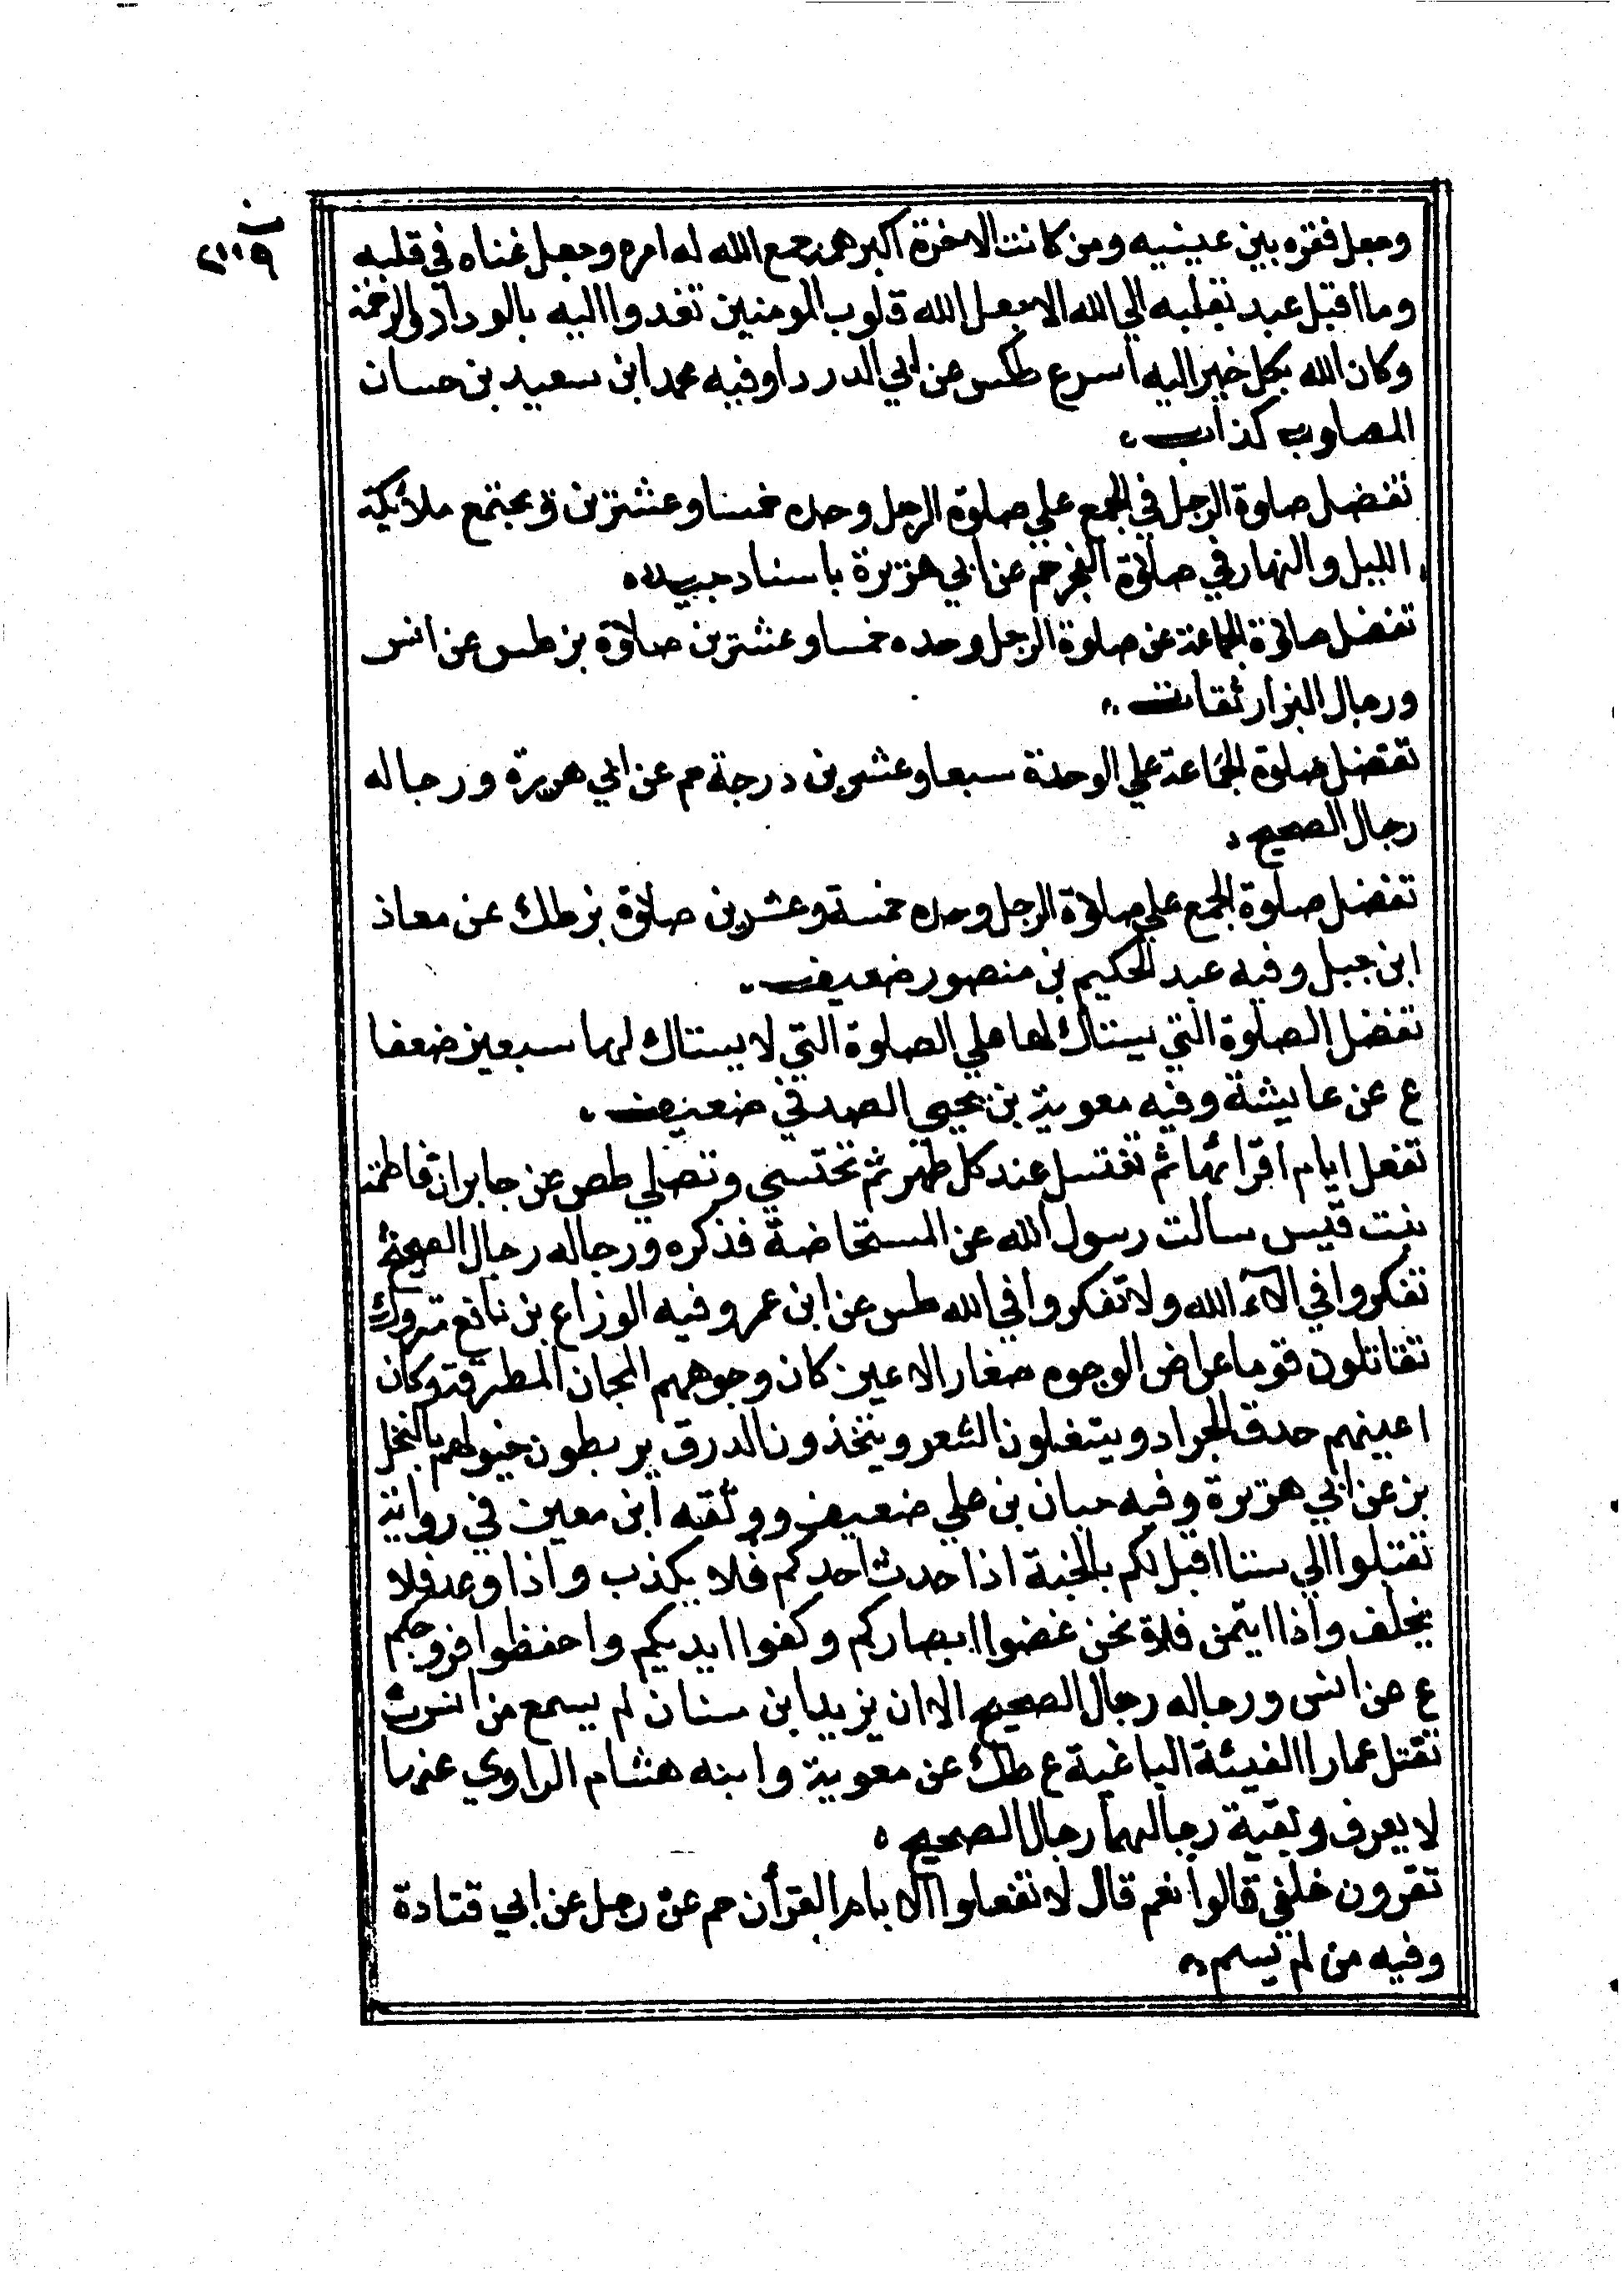 وجعل فقره بين عينيه ومن كانت الاخرة اكبر همه جمع الله له امره وجعل غناه في قلبه
وما اقبل عبد بقلبه الي الله الا جعل الله قلوب المومنين تغدوا اليه بالوداد والرحمة
وكان الله بكل خير اليه اسرع طكس عن ابي الدردا وفيه محمد ابن سعيد بن حسان
المصلوب كذاب
تفضل صلوة الرجل في الجمع علي صلوة الرجل وحده خمسا وعشرين ويجتمع ملائكة
الليل والنهار في صلاة الفجر حم عن ابي هريرة باسناد جيد
تفضل صلاة الجماعة عن صلوة الرجل وحده خمسا وعشرين صلاة بز طس عن انس
ورجال البزار ثقات
تفضل صلوة الجماعة علي الوحدة سبعا وعشرين درجة حم عن ابي هريرة ورجاله
رجال الصحيح
تفضل صلوة الجمع علي صلاة الرجل وحده خمسة وعشرين صلاة بز طك عن معاذ
ابن جبل وفيه عبد الحكيم بن منصور ضعيف
تفضل الصلوة التي يستاك لها علي الصلوة التي لا يستاك لها سبعين ضعفا
ع عن عايشة وفيه معوية بن يحيي الصدفي ضعيف
تفعل ايام اقرائها ثم تغتسل عند كل طهر ثم تحتسي وتصلي طص عن جابر ان فاطمة
بنت قيس سالت رسول الله عن المستحاضة فذكره ورجاله رجال الصحيح
تفكروا في الآء الله ولا تفكروا في الله طس عن ابن عمر وفيه الوزاع بن نافع متروك
تقاتلون قوما عراض الوجوه صغار الاعين كان وجوههم المجان المطرقة وكان
اعينهم حدق الجراد وينتعلون الشعر ويتخذون الدرق يربطون خيولهم بالنخل
بز عن ابي هريرة وفيه حبان بن علي ضعيف ووثقه ابن معين في رواية
تقبلوا الي ستا اقبل لكم بالجنة اذا حدث احدكم فلا يكذب واذا وعد فلا
يخلف واذا ايتمن فلا يخن غضوا ابصاركم وكفوا ايديكم واحفظوا فروجكم
ع عن انس ورجاله رجال الصحيح الا ان يزيد ابن سنان لم يسمع من انس
تقتل عمارا الفيئة الباغية ع طك عن معوية وابنه هشام الراوي عنها
لا يعرف وبقية رجالهما رجال الصحيح
تقرون خلفي قالوا نعم قال لا تفعلوا الا بام القرأن حم عن رجل عن ابي قتادة
وفيه من لم يسم